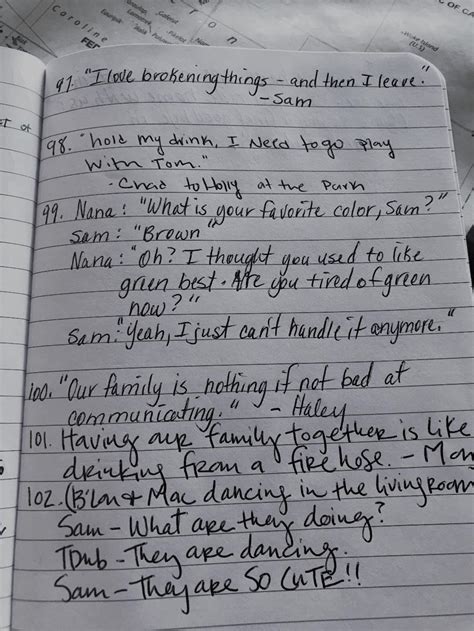 Caroline
FED
OF CA
Wake Island
(U.S.)
97. "I love brokening things - and then I leave."
- Sam
98. "hold my drink, I Need to go play
With Tom."
- Chad to Holly at the Park
99. Nana: "What is your favorite color, Sam?"
Sam: "Brown"
Nana: "Oh? I thought you used to like
green best. Are you tired of green
now?"
Sam: "Yeah, I just can't handle it anymore."
100. "Our family is nothing if not bad at
communicating." - Haley
101. Having our family together is like
drinking from a fire hose. - Mom
102. (B'Lon & Mac dancing in the living room
Sam - What are they doing?
TDub - They are dancing.
Sam - They are SO CUTE!!